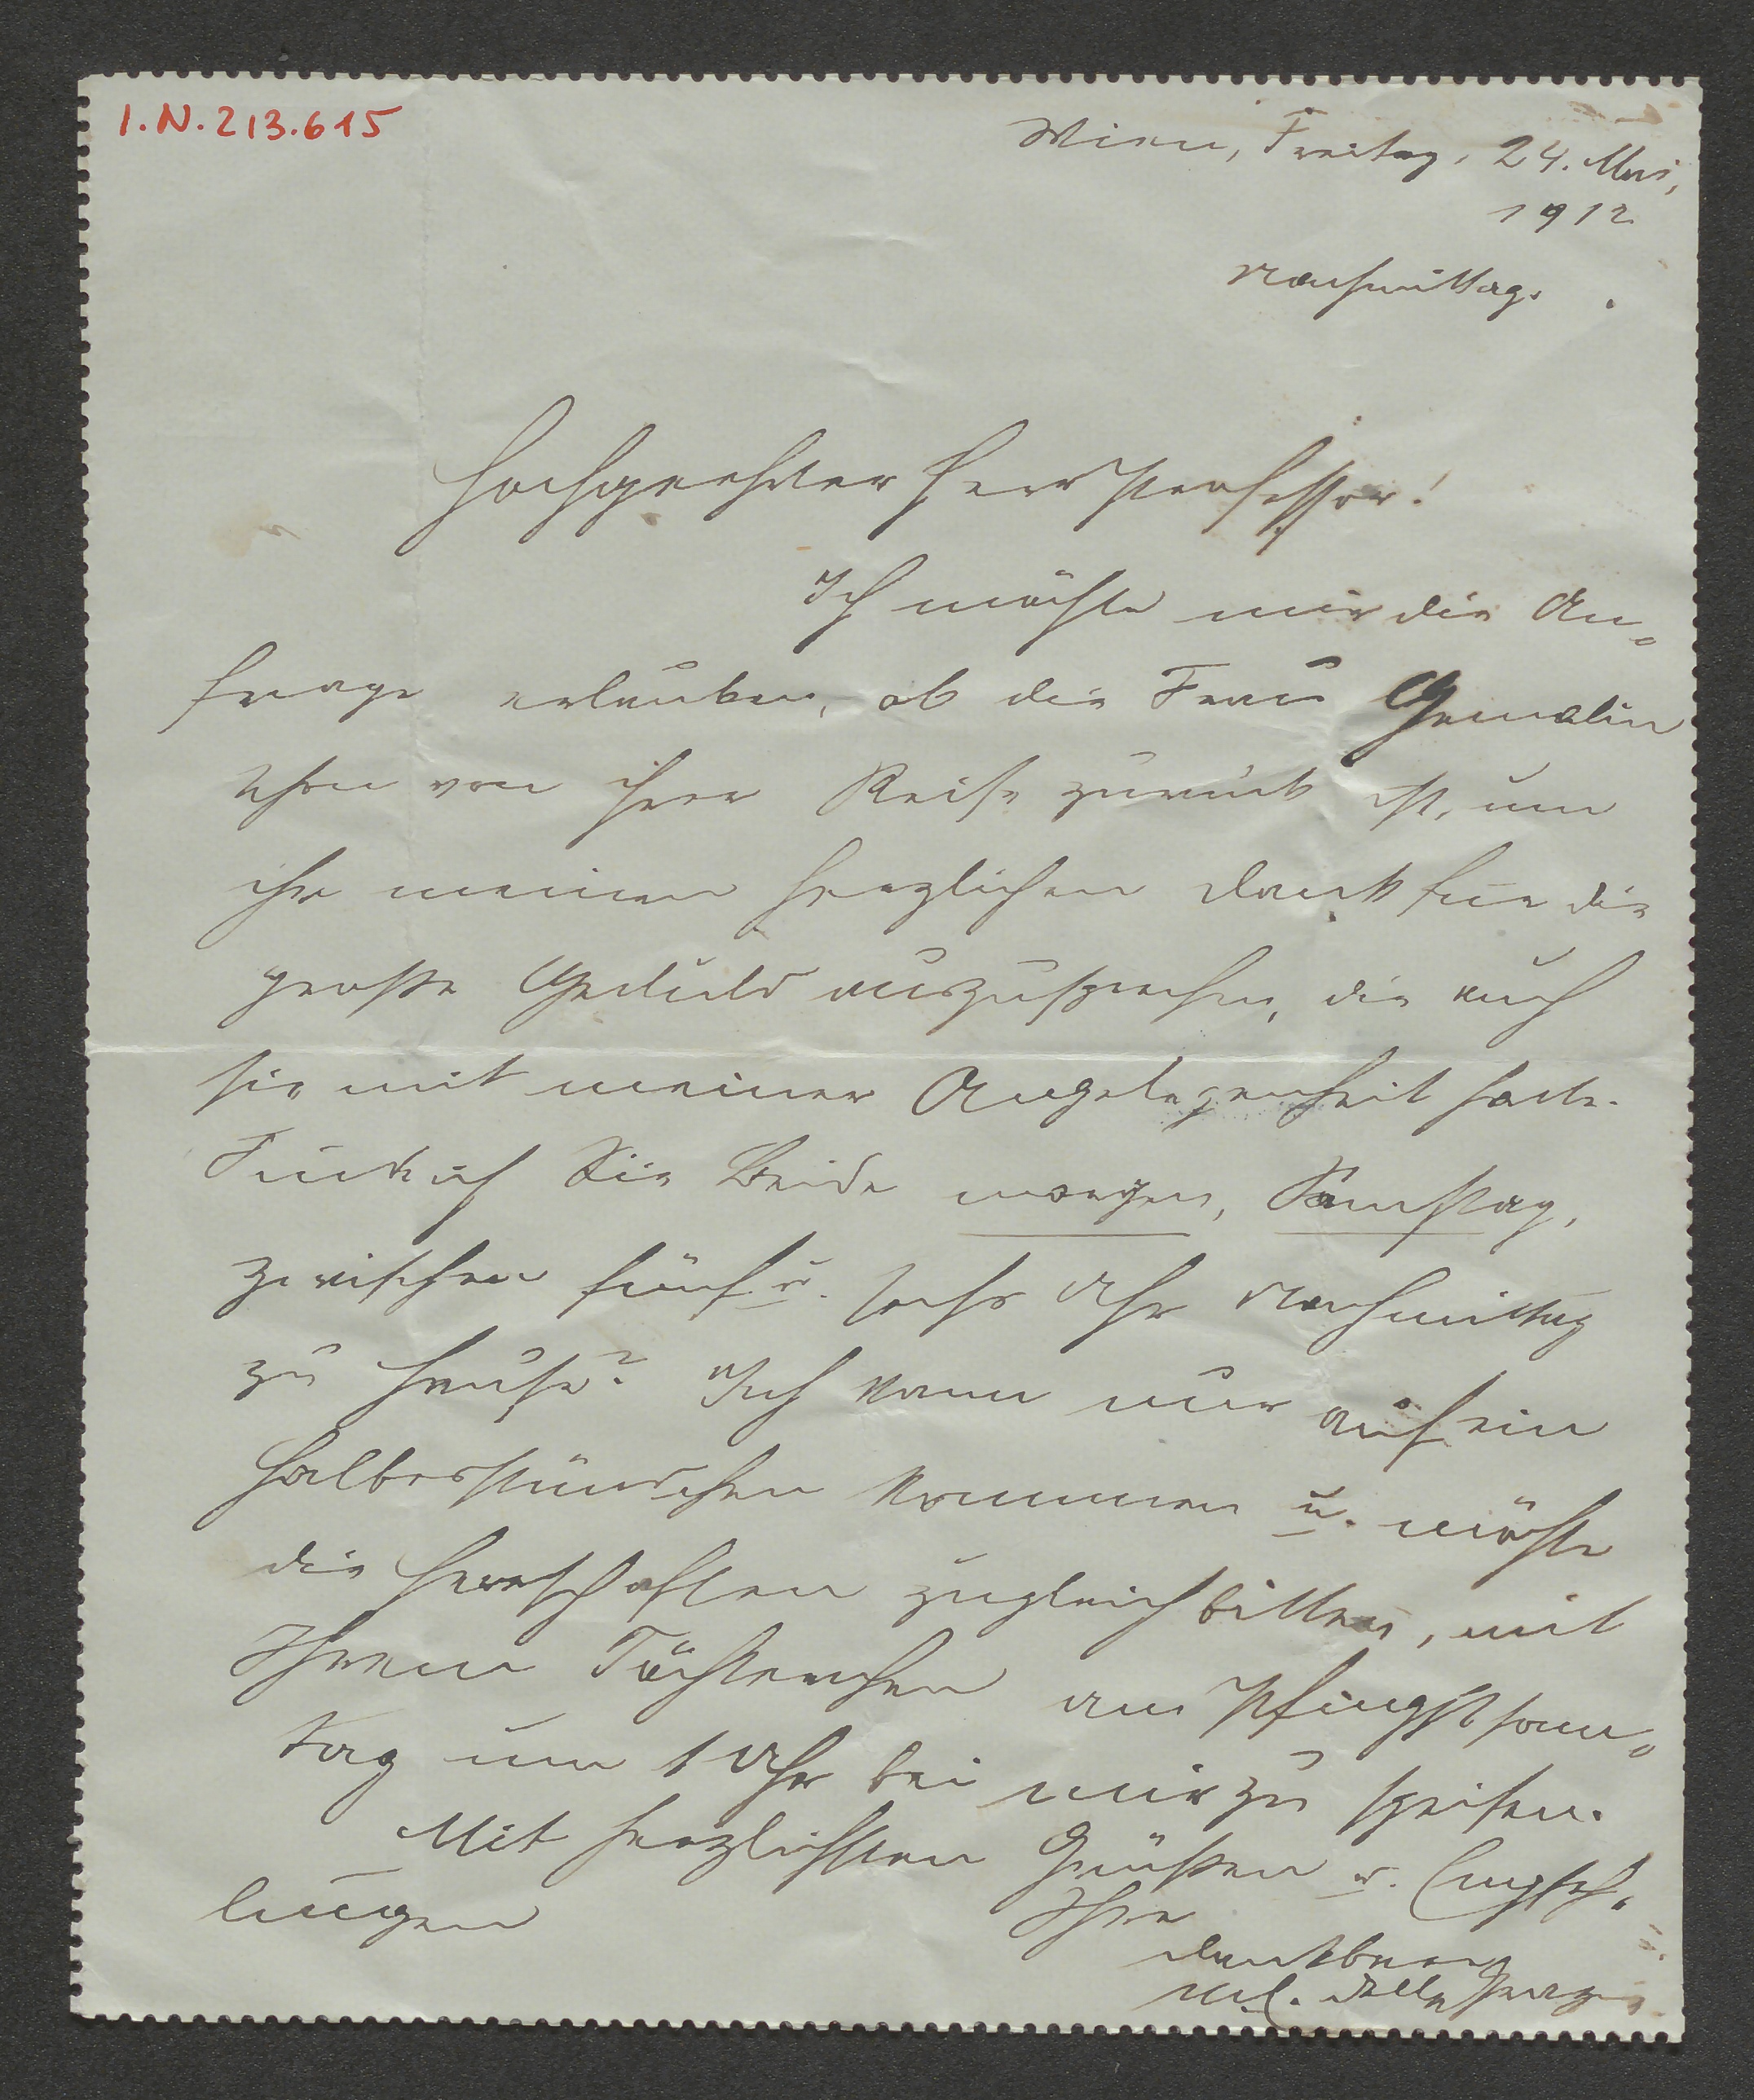 I.N. 213.615
Wien, Freitag, 24. Mai,
1912
Nachmittag.
Hochgeehrter Herr Professor!
Ich möchte mir die An-
frage erlauben, ob die Frau Gemalin
schon von ihrer Reise zurück ist, um
ihr meinen herzlichen Dank für die
große Geduld auszusprechen, die auch
sie mit meiner Angelegenheit hatte.
Find ich Sie Beide morgen, Samstag,
zwischen fünf u. sechs Uhr Nachmittag
zu Hause? Ich kann nur auf ein
halbes Stündchen kommen u. möchte
die Herrschaften zugleich bitten, mit
Ihrem Töchterchen am Pfingstsonn-
tag um 1 Uhr bei mir zu speisen.
Mit herzlichsten Grüßen u. Empfeh-
lungen
Ihre
dankbare
M. E. delle Grazie